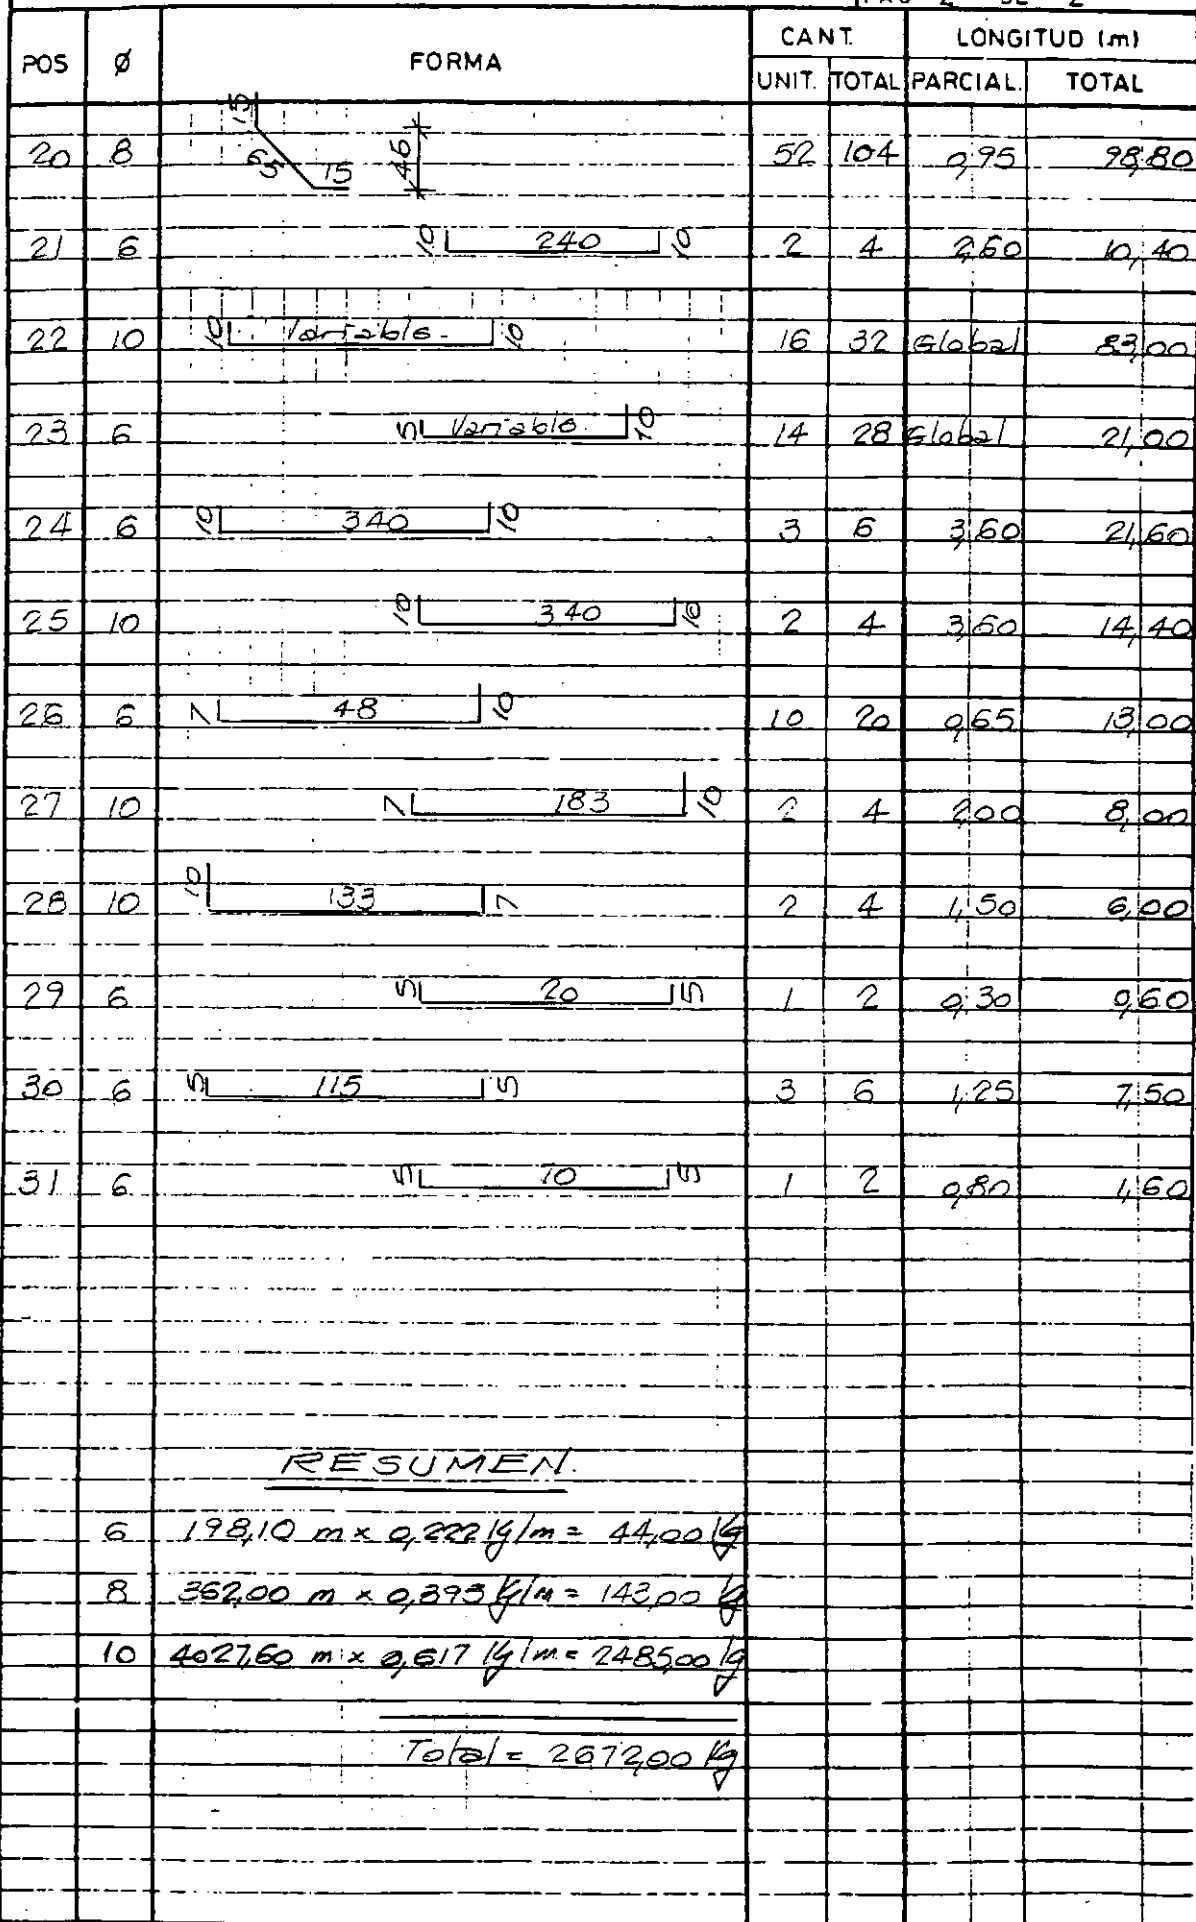 PAG 2 DE 2
POS Ø FORMA CANT. LONGITUD (m)
UNIT. TOTAL PARCIAL. TOTAL
20 8 15 65 15 46 52 104 0,95 98,80
21 6 10 240 10 2 4 2,60 10,40
22 10 10 Variable. 10 16 32 Global 83,00
23 6 5 Variable. 10 14 28 Global 21,00
24 6 10 340 10 3 6 3,60 21,60
25 10 10 340 10 2 4 3,60 14,40
26 6 7 48 10 10 20 0,65 13,00
27 10 7 183 10 2 4 2,00 8,00
28 10 10 133 7 2 4 1,50 6,00
29 6 5 20 5 1 2 0,30 0,60
30 6 5 115 5 3 6 1,25 7,50
31 6 5 10 5 1 2 0,80 1,60
RESUMEN.
6 198,10 m x 0,222 kg/m = 44,00 kg
8 362,00 m x 0,393 kg/m = 143,00 kg
10 4027,60 m x 0,617 kg/m = 2485,00 kg
Total = 2672,00 kg